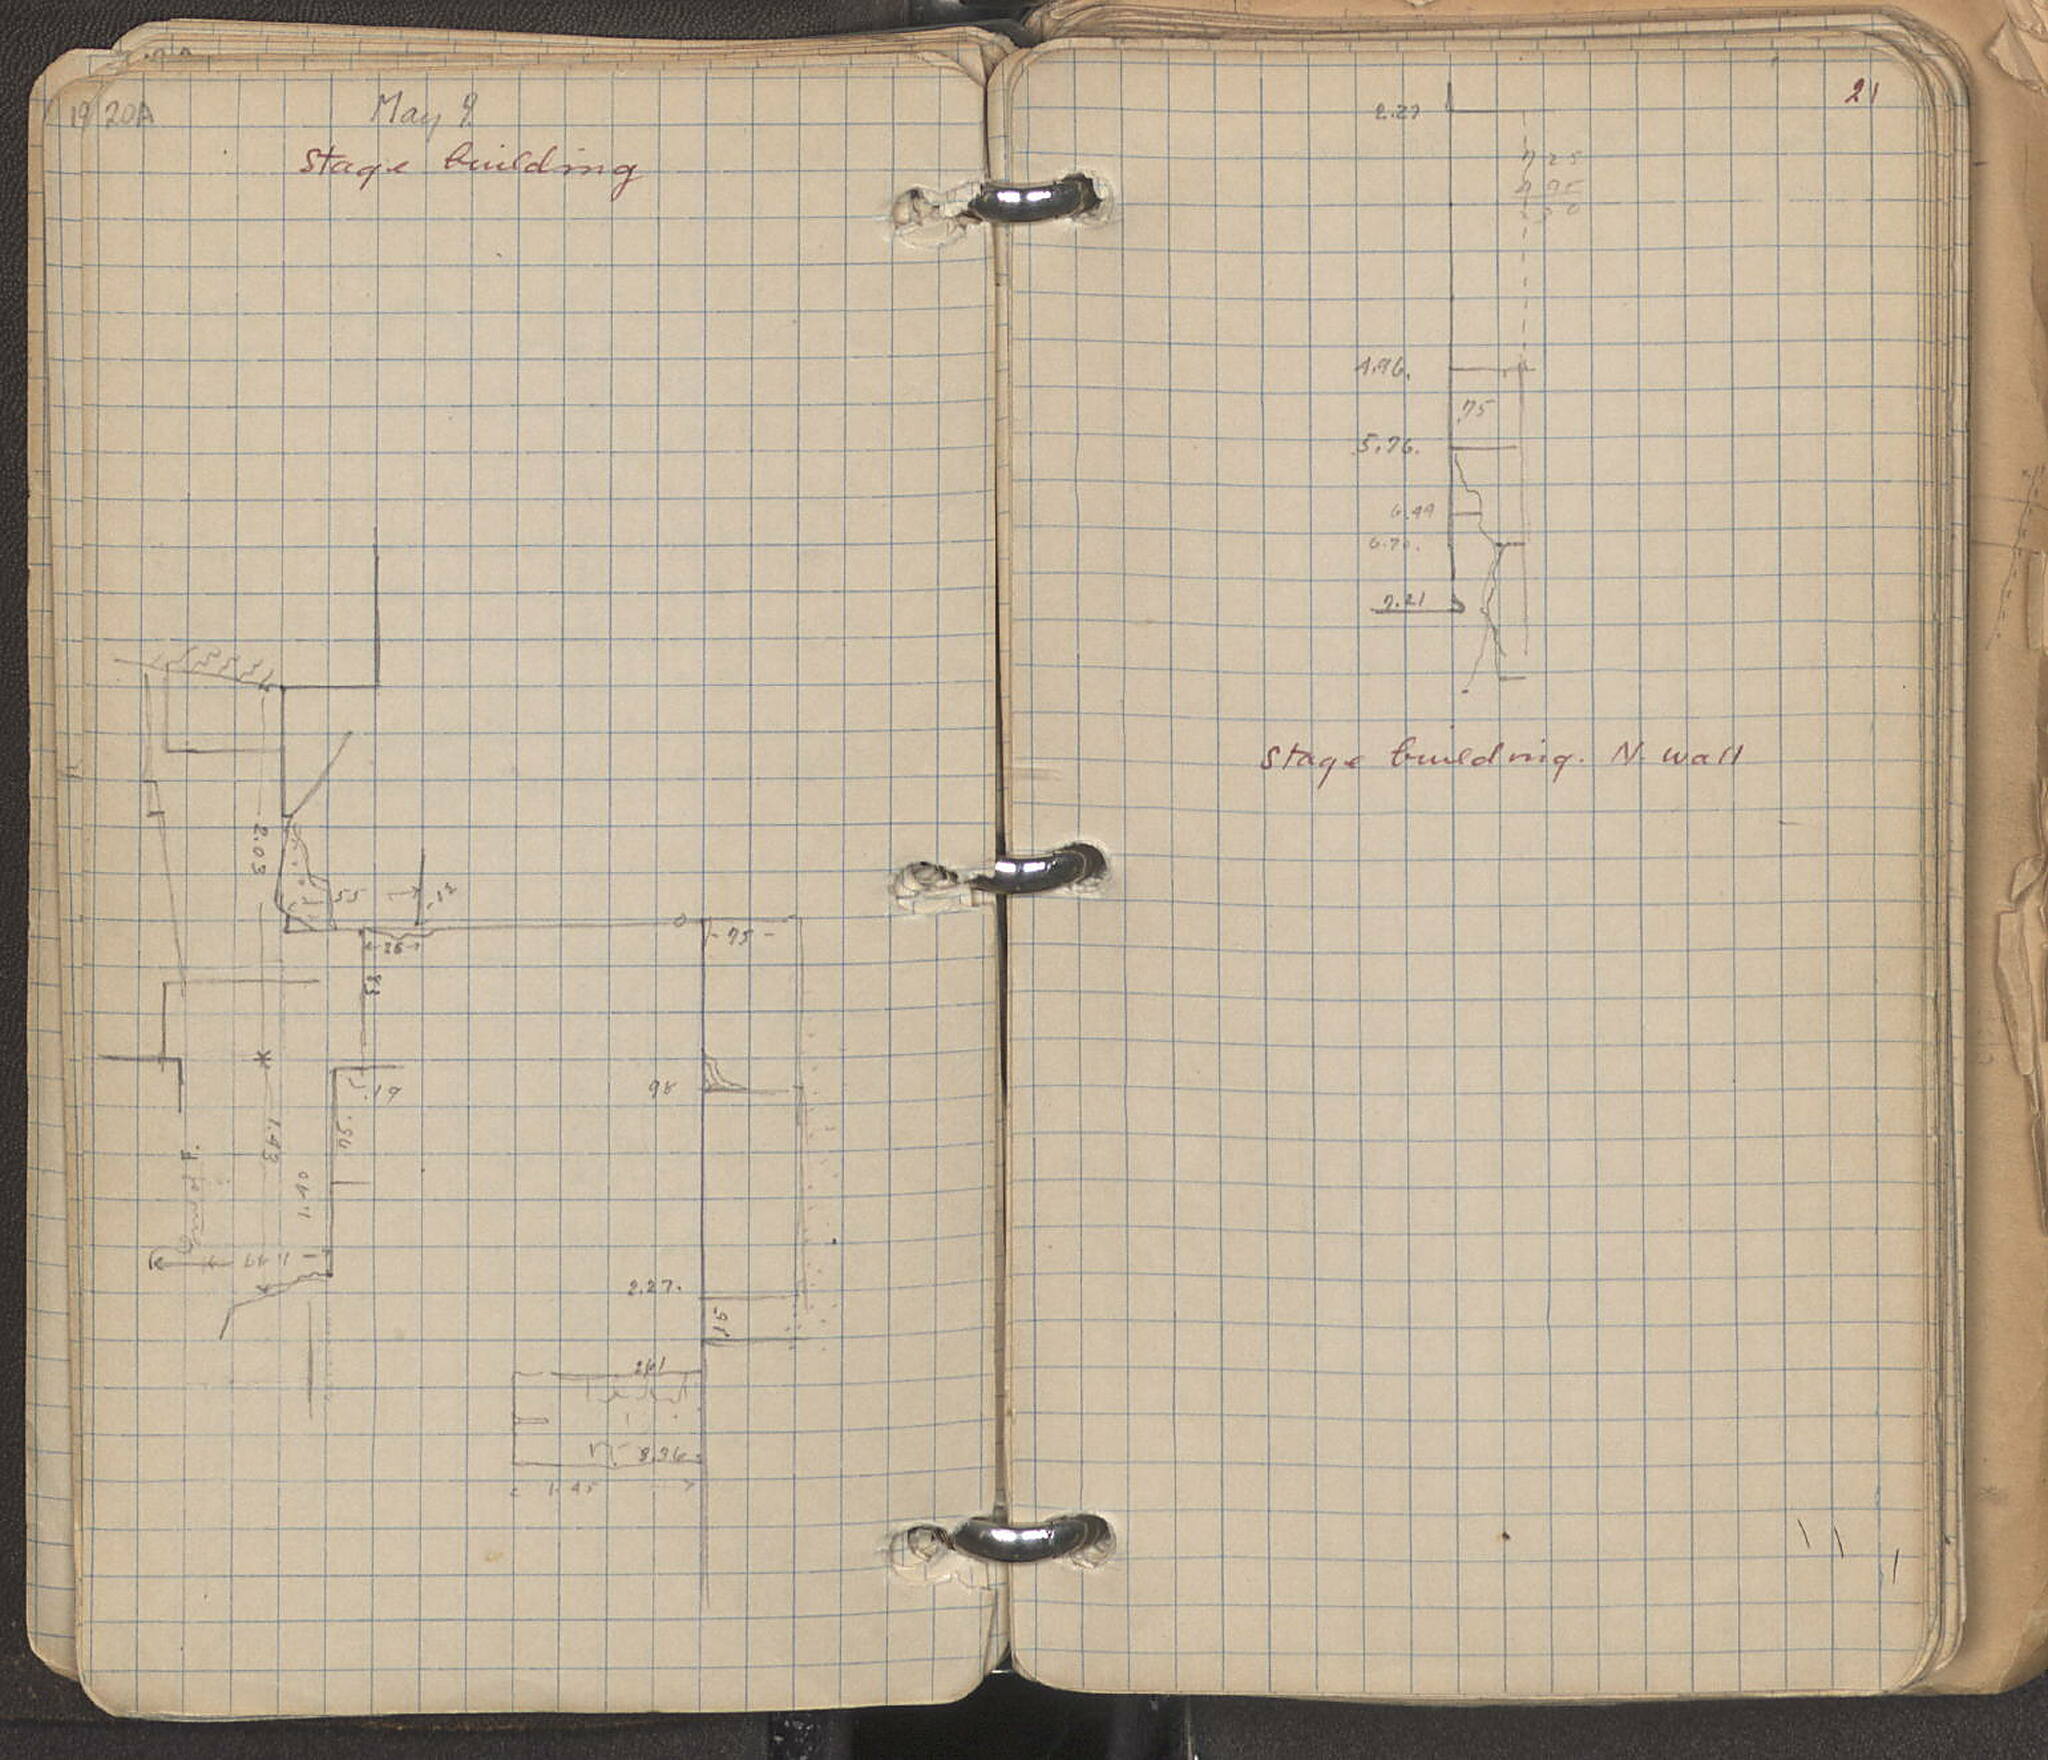 19
20A
May 9
Stage building
2.03
55
.12
.26
.83
75
.19
.56
98
1.43
1.40
2.27.
.91
201
8.36
1.45
21
2.27
725
4.96.
.75
5.76.
6.49
6.70.
7.21
Stage building. N. wall